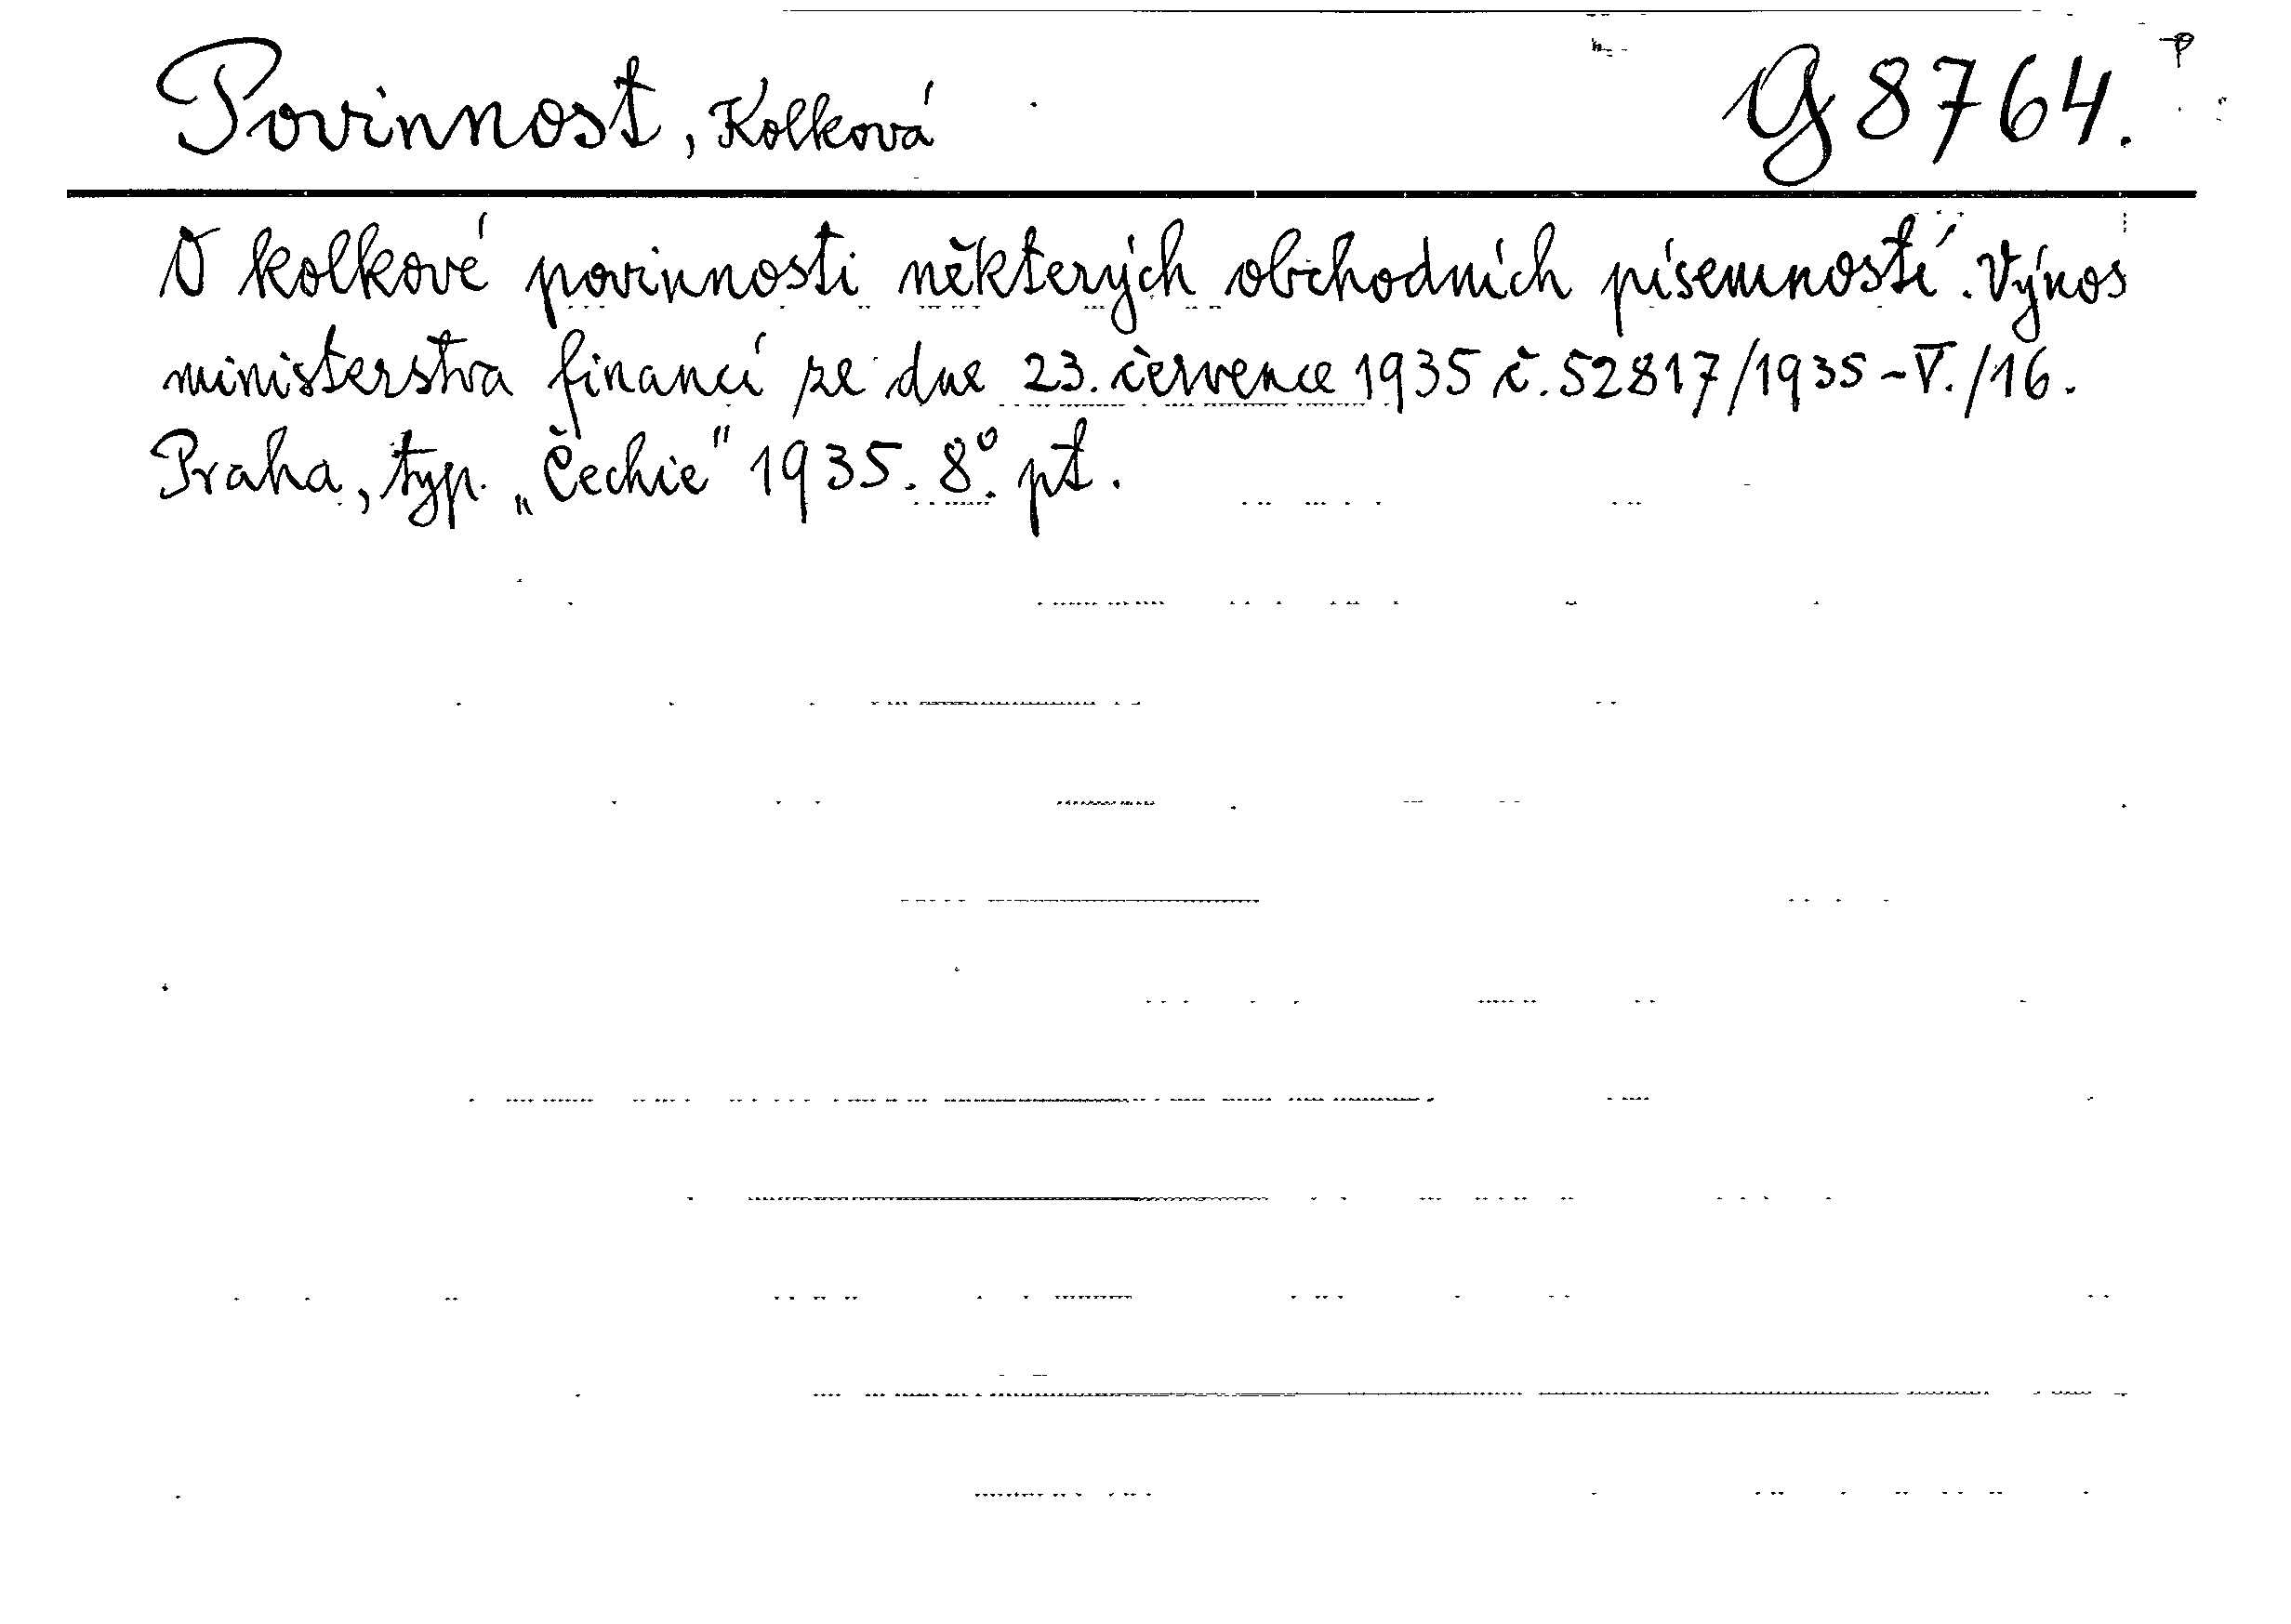 Povinnost, Kolková G 8764.
O kolkové povinnosti některých obchodních písemností. Výnos
ministerstva financí ze dne 23. července 1935 č. 52817/1935-V./16.
Praha, typ. „Čechie" 1935. 8°. pt.